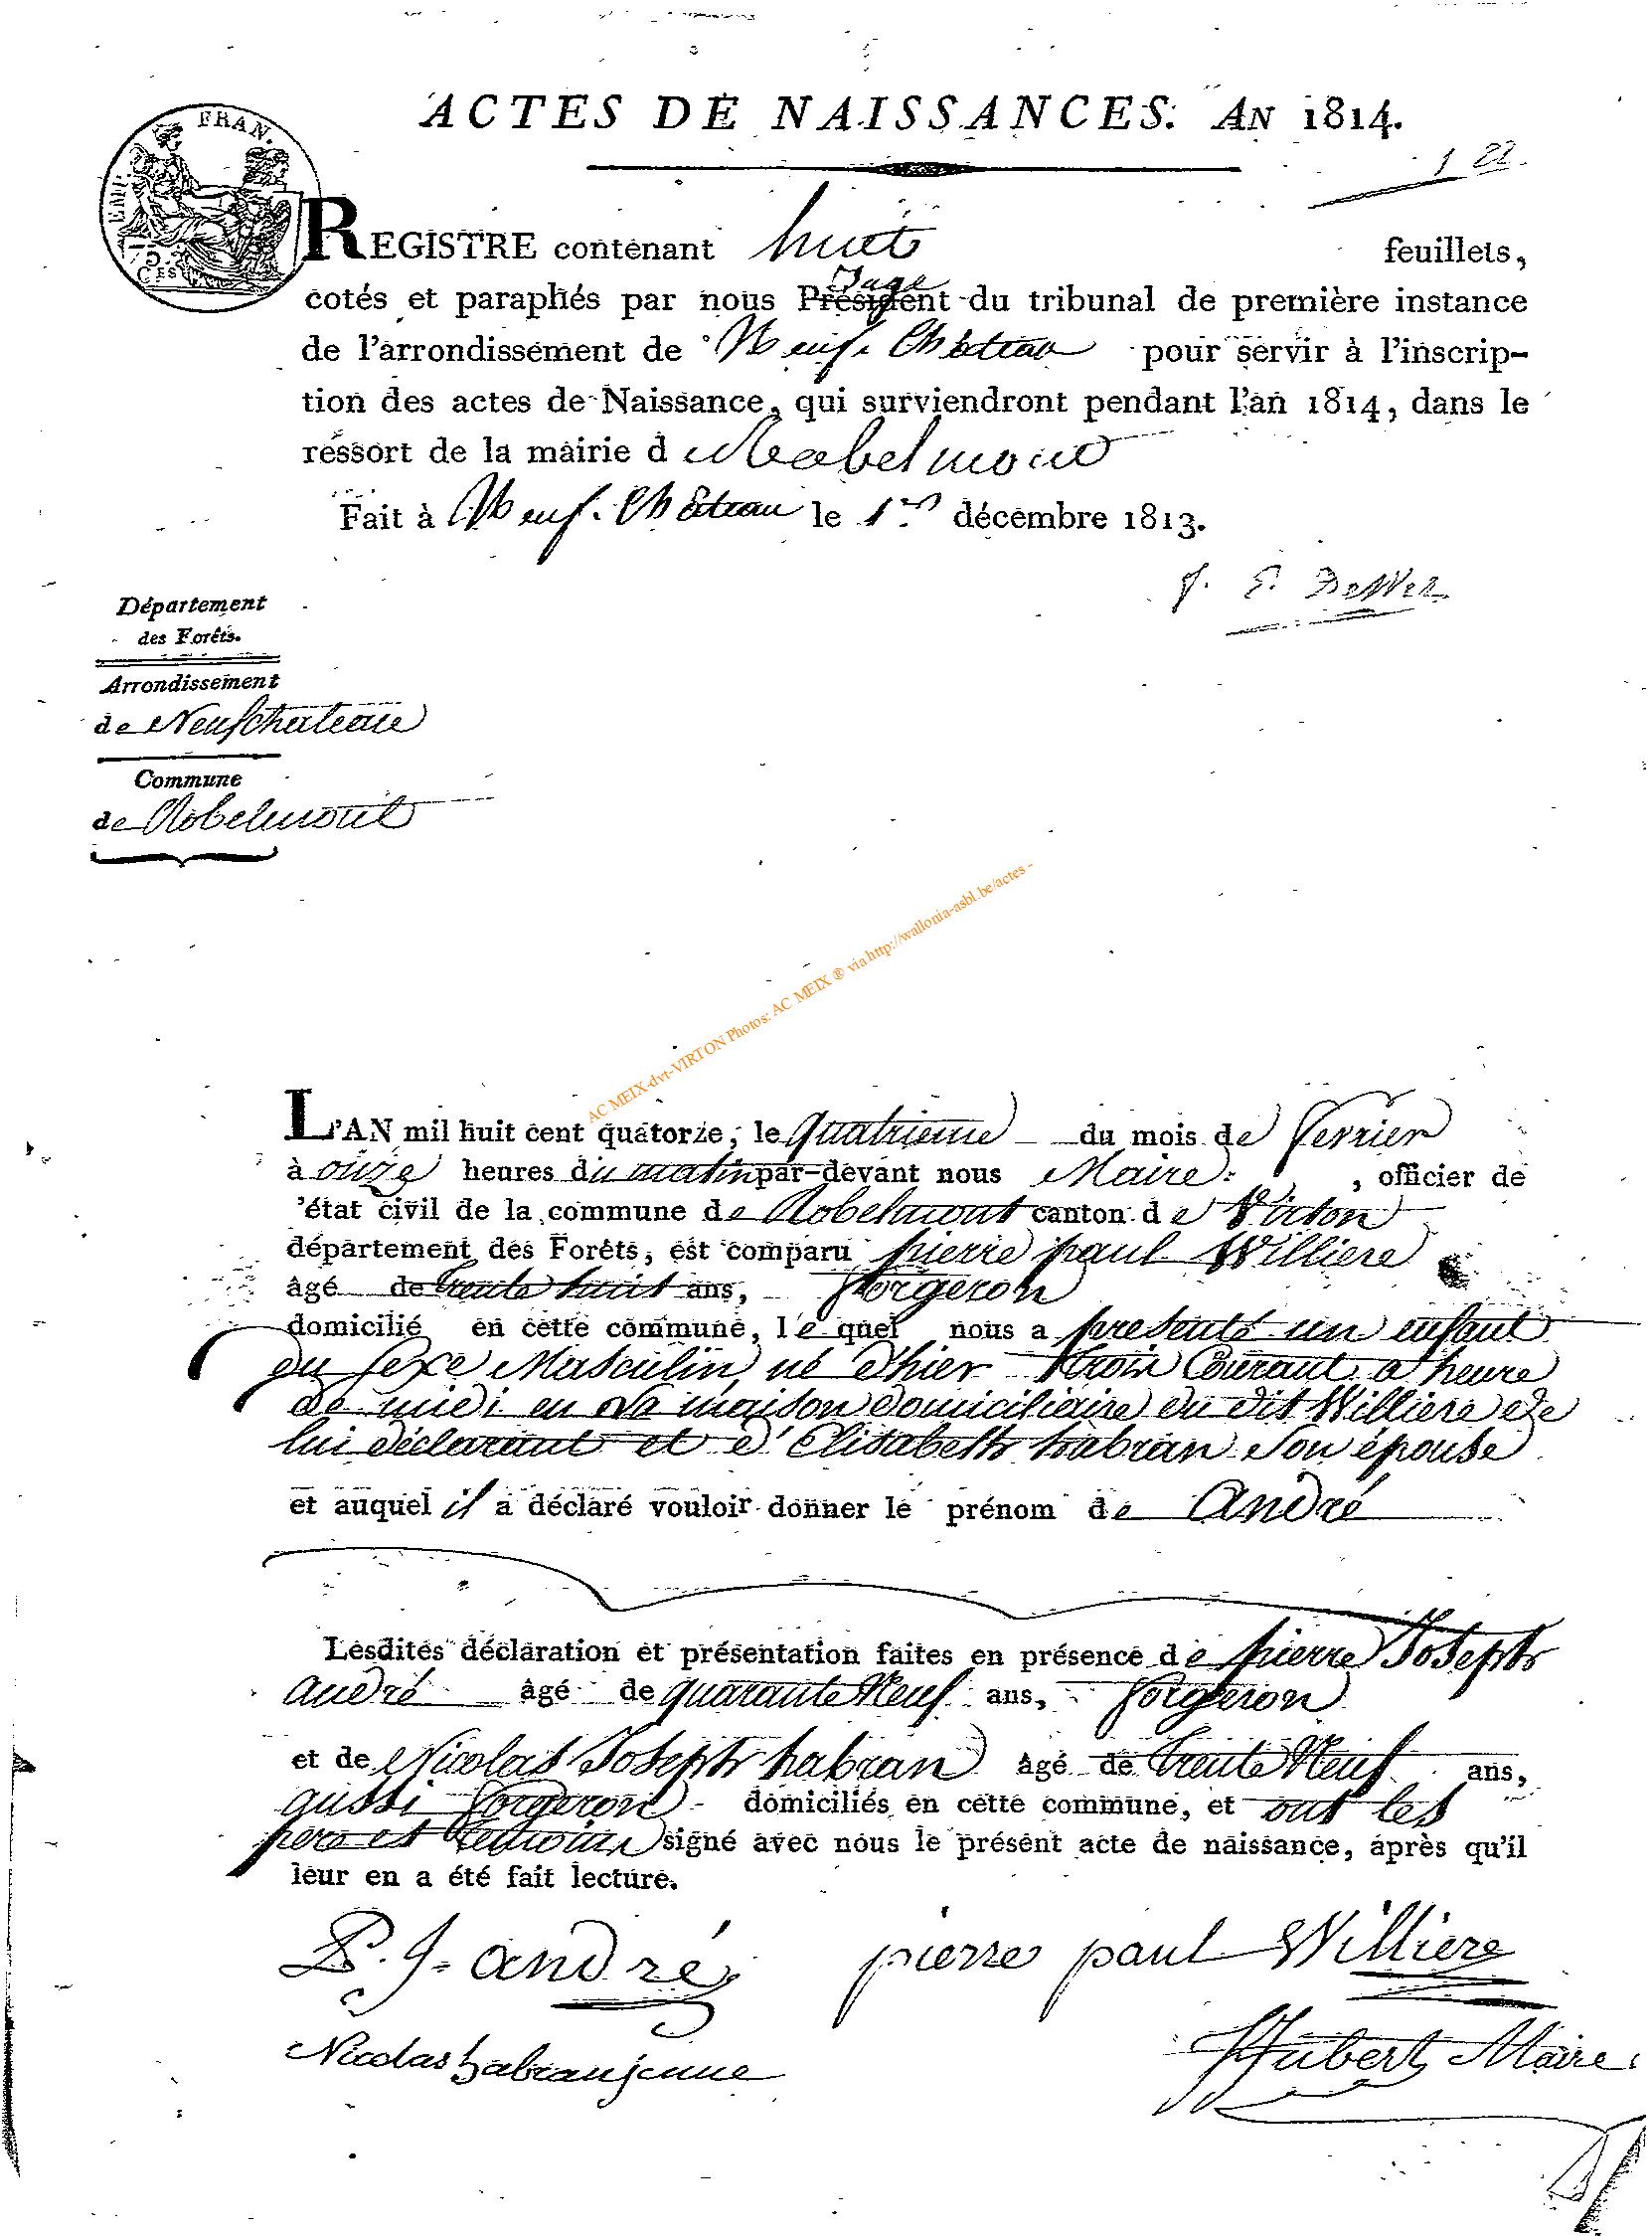 ACTES DE NAISSANCES. AN 1814.
1 22.
EMP. FRAN.
75
CES
REGISTRE contenant huit feuillets,
Juge
cotés et paraphés par nous Président du tribunal de première instance
de l'arrondissement de Neuf-Château pour servir à l'inscrip-
tion des actes de Naissance, qui surviendront pendant l'an 1814, dans le
ressort de la mairie d
Fait à Neuf-Château le 1er décembre 1813.
Département
des Forêts.
Arrondissement
de Neufchateau
Commune
de Robelmont
AC MEIX-dvt-VIRTON Photos: AC MEIX ® via http://wallonia-asbl.be/actes -
L'AN mil huit cent quatorze, le quatrieme du mois de fevrier
à onze heures du matin par-devant nous Maire, officier de
'état civil de la commune de Robelmont canton de Virton
département des Forêts, est comparu pierre paul Williere
âgé de trente huit ans, forgeron
domicilié en cette commune, le quel nous a presenté un enfant
du sexe Masculin né d'hier trois Courant a heure
de midi en sa maison domiciliaire du dit Williere de
lui déclarant et d'Elisabeth habran son épouse
et auquel il a déclaré vouloir donner le prénom de André
Lesdites déclaration et présentation faites en présence de pierre Joseph
André âgé de quarante Neuf ans, forgeron
et de Nicolas Joseph habran âgé de trente Neuf ans,
aussi forgeron domiciliés en cette commune, et ont les
pere et temoins signé avec nous le présent acte de naissance, après qu'il
leur en a été fait lecture.
P. J. andré pierre paul Williere
Nicolas habran jeune Hubert Maire